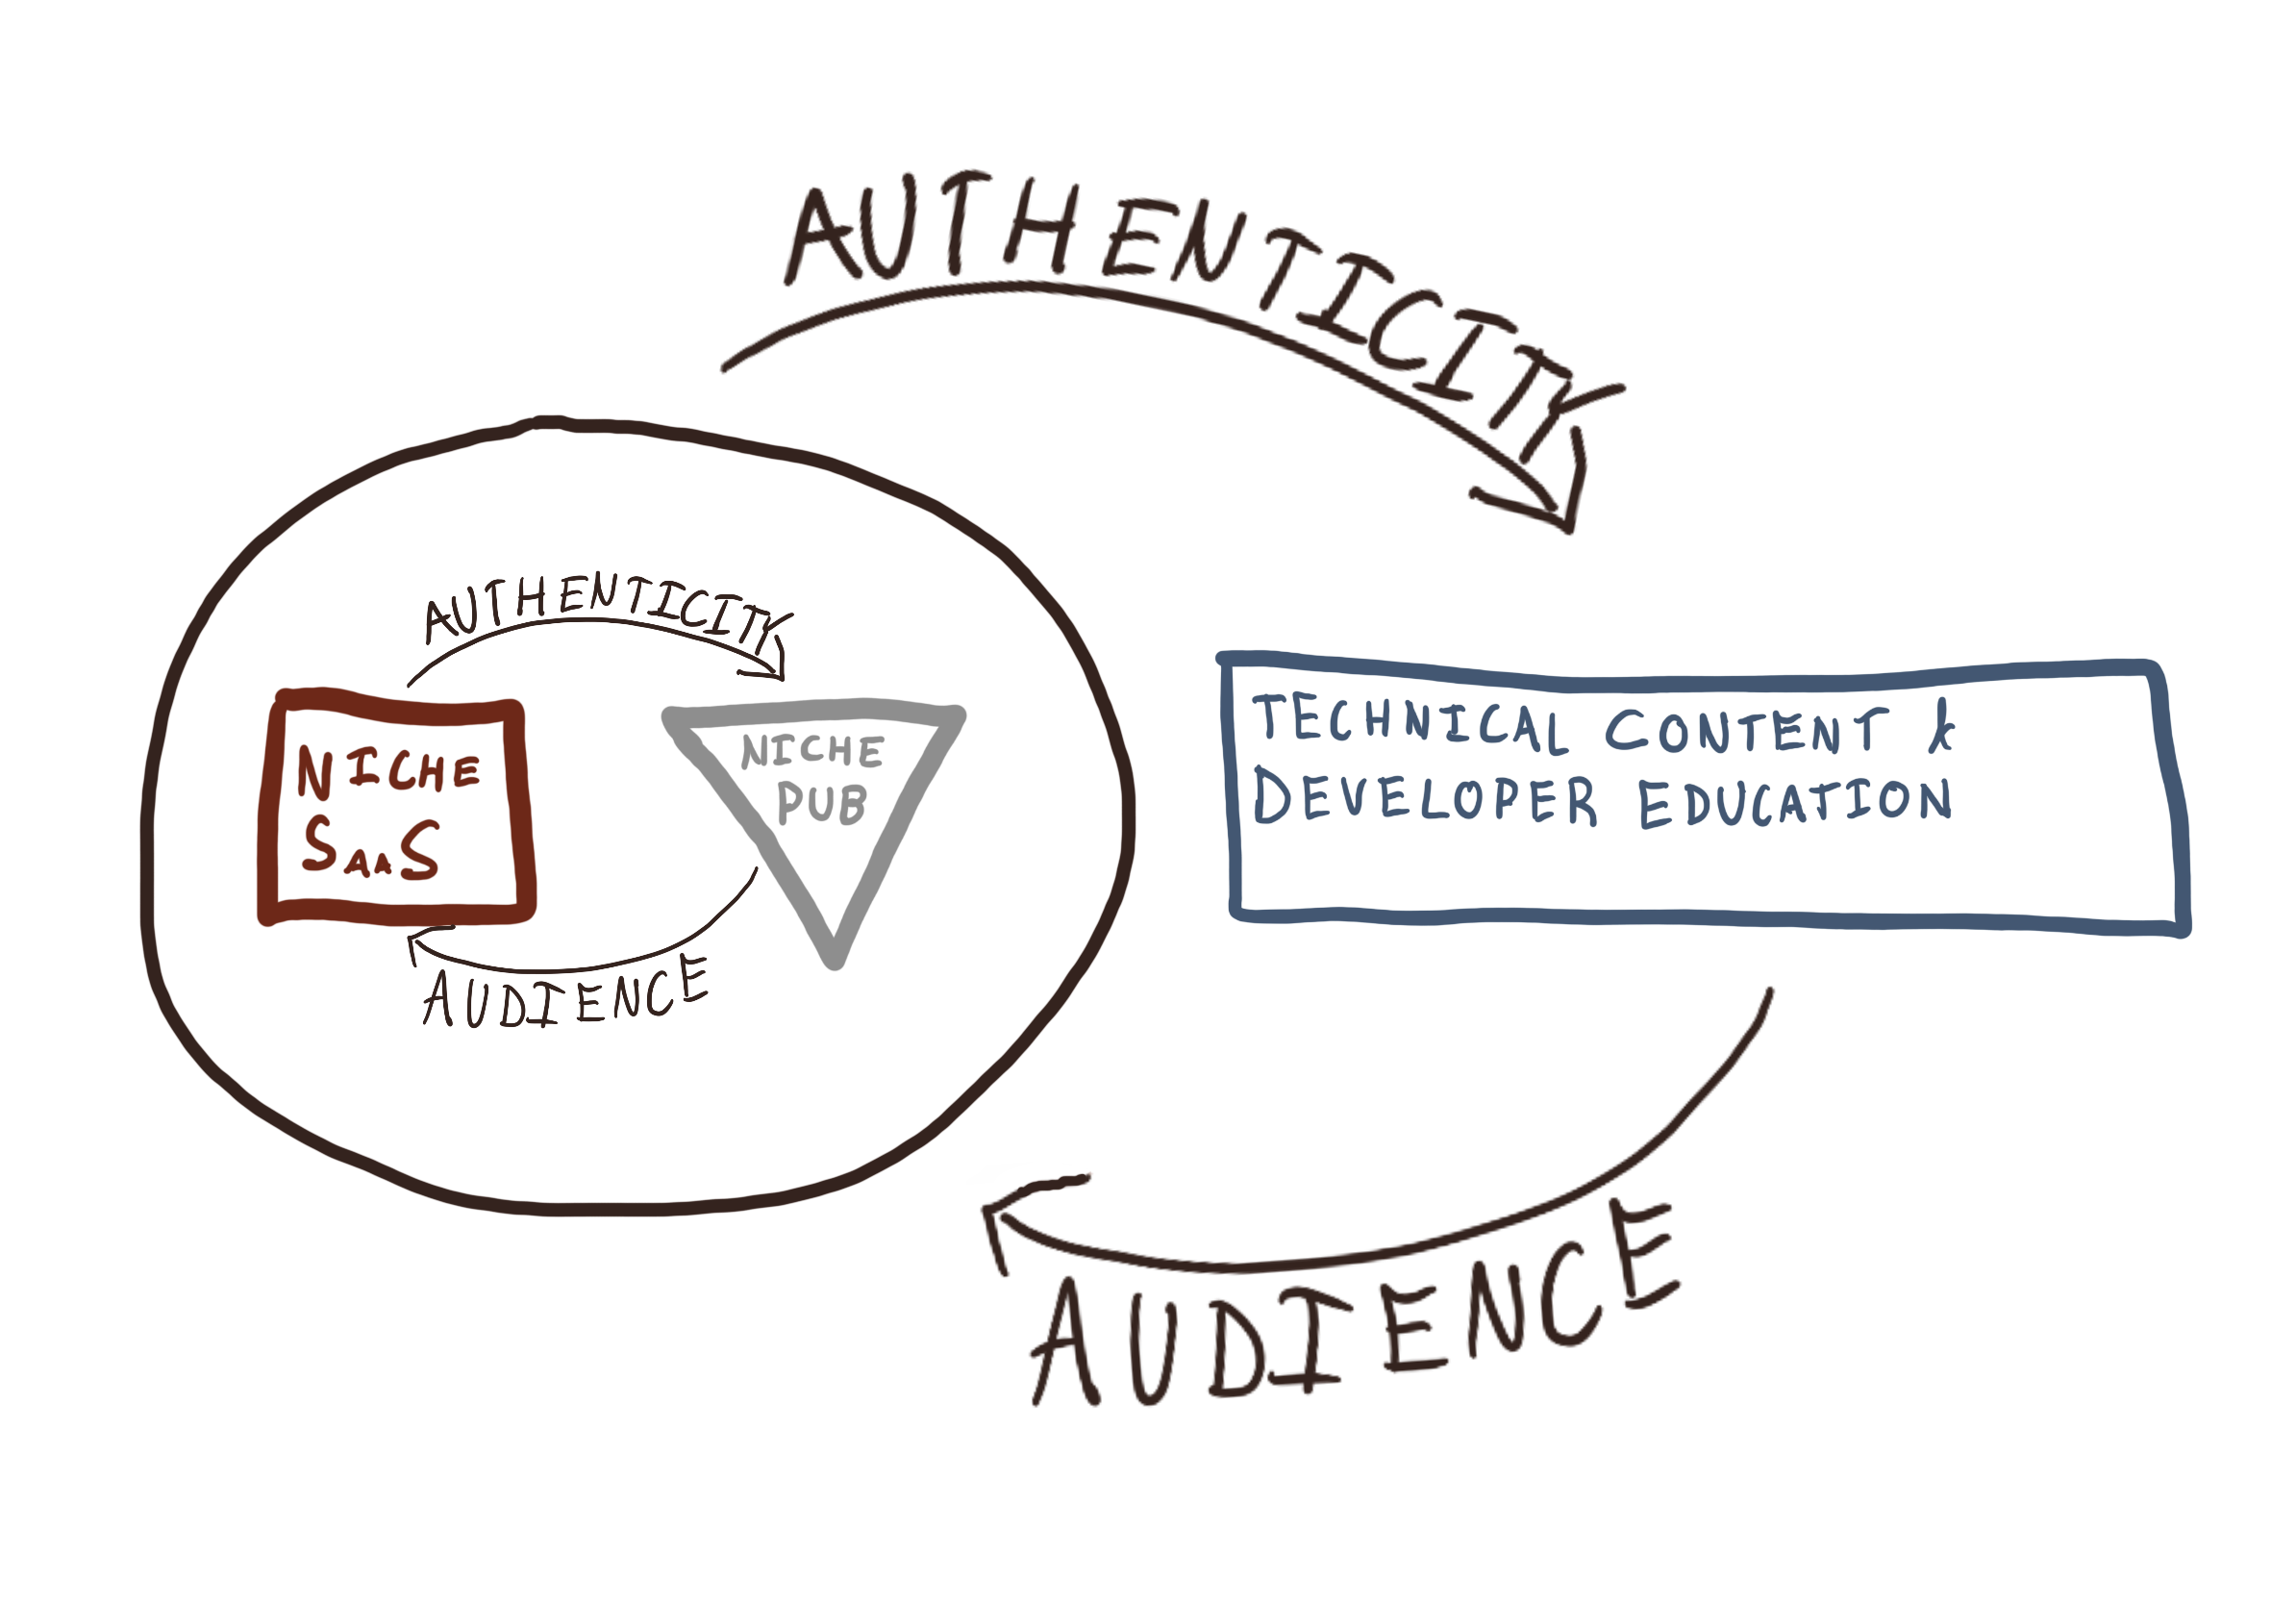 AUTHENTICITY
AUTHENTICITY
NICHE
SaaS
NICHE
PUB
AUDIENCE
TECHNICAL CONTENT &
DEVELOPER EDUCATION
AUDIENCE